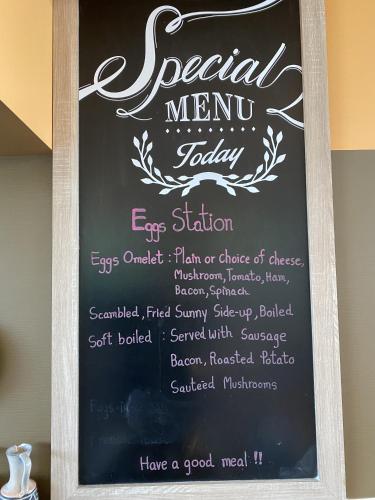 Special
MENU
Today
Eggs Station
Eggs Omelet : Plain or choice of cheese,
Mushroom, Tomato, Ham,
Bacon, Spinach
Scambled, Fried Sunny Side-up, Boiled
Soft boiled : Served With Sausage
Bacon, Roasted Potato
Sauteed Mushrooms
Have a good meal !!